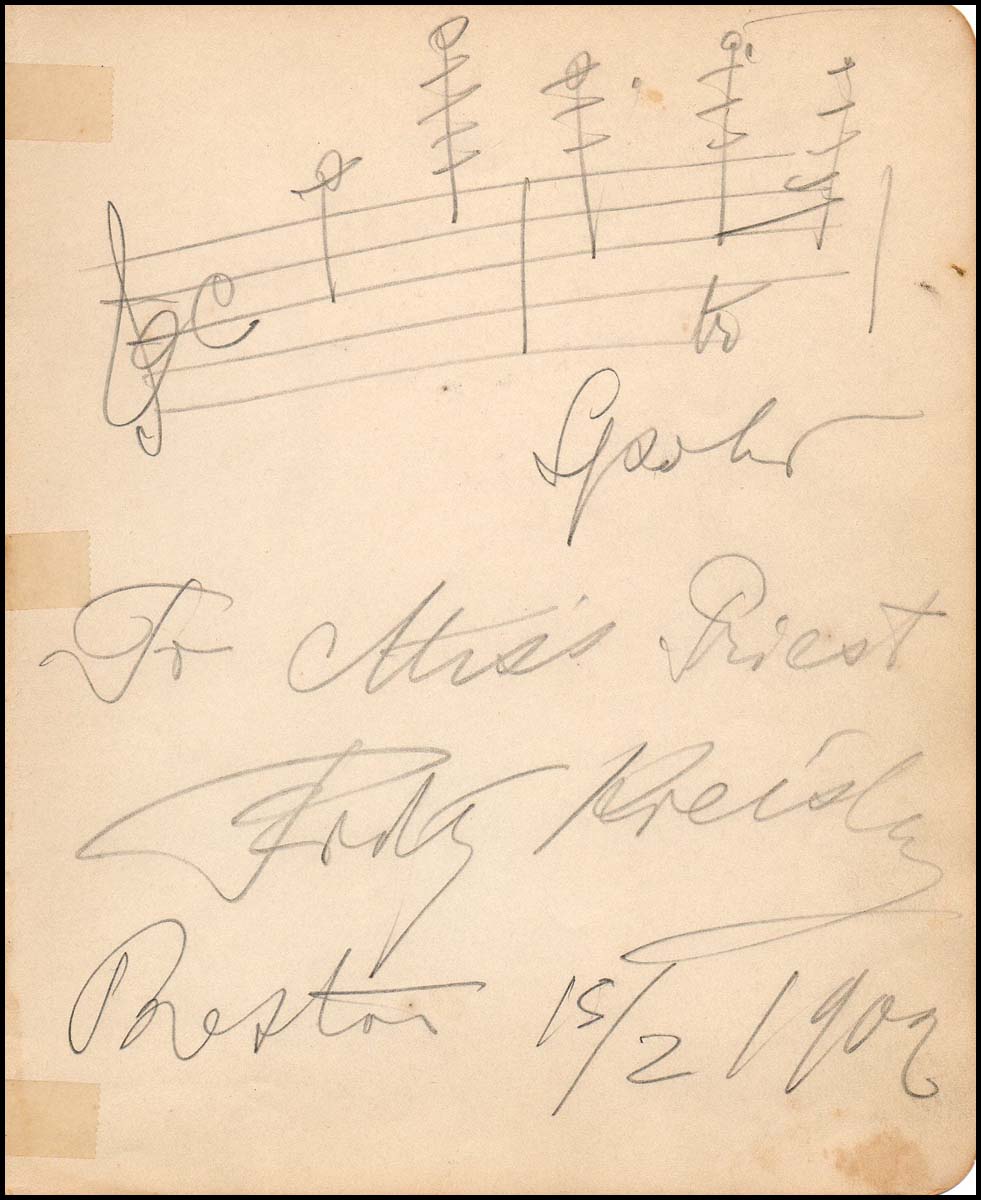 tr
Spohr
To Miss Priest
Fritz Kreisler
Preston 15/2 1902